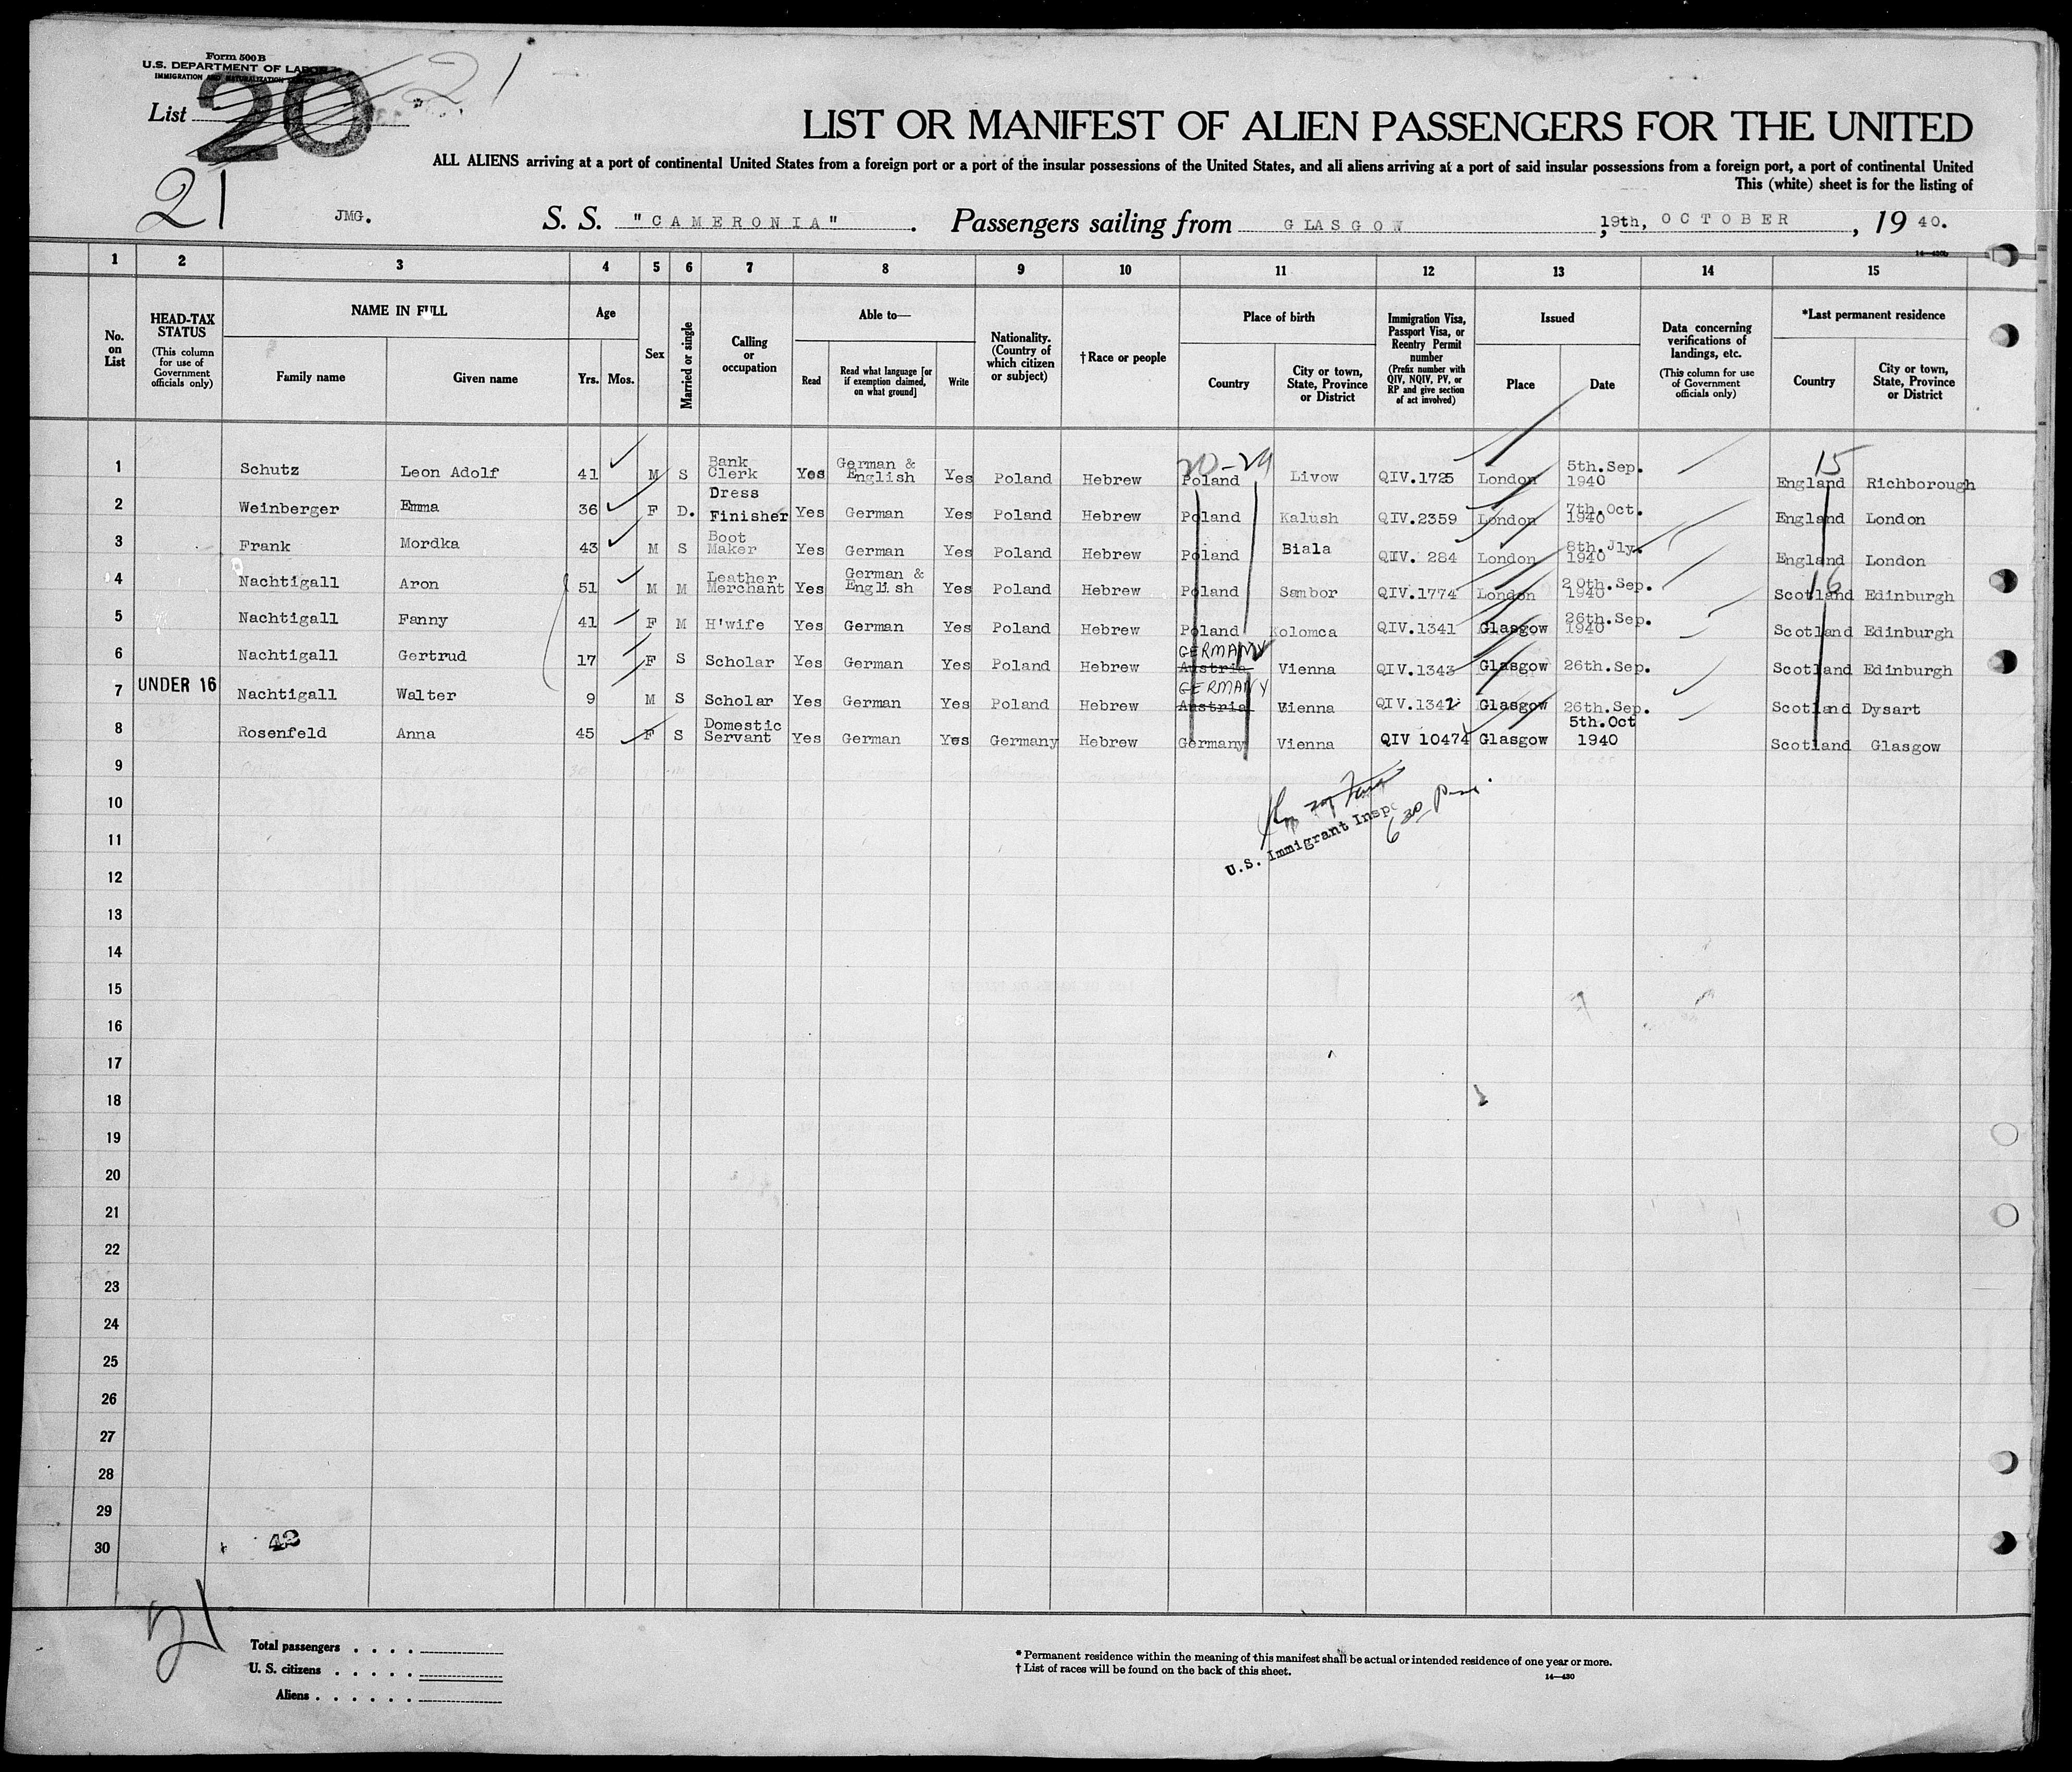 Form 500B
U.S. DEPARTMENT OF LABOR
IMMIGRATION AND NATURALIZATION SERVICE
21
List 20
21
JMG.
LIST OR MANIFEST OF ALIEN PASSENGERS FOR THE UNITED
ALL ALIENS arriving at a port of continental United States from a foreign port or a port of the insular possessions of the United States, and all aliens arriving at a port of said insular possessions from a foreign port, a port of continental United
This (white) sheet is for the listing of
S. S. "CAMERONIA". Passengers sailing from GLASGOW, 19th, OCTOBER, 1940.
14—430b
1 2 3 4 5 6 7 8 9 10 11 12 13 14 15
No. on List
HEAD-TAX STATUS (This column for use of Government officials only)
NAME IN FULL
Family name Given name
Age
Yrs. Mos.
Sex
Married or single
Calling or occupation
Able to—
Read Read what language [or if exemption claimed, on what ground] Write
Nationality. (Country of which citizen or subject)
†Race or people
Place of birth
Country City or town, State, Province or District
Immigration Visa, Passport Visa, or Reentry Permit number (Prefix number with QIV, NQIV, PV, or RP and give section of act involved)
Issued
Place Date
Data concerning verifications of landings, etc. (This column for use of Government officials only)
*Last permanent residence
Country City or town, State, Province or District
20-29 15
1 Schutz Leon Adolf 41 M S Bank Clerk Yes German & English Yes Poland Hebrew Poland Livow QIV.1725 London 5th.Sep. 1940 England Richborough
2 Weinberger Emma 36 F D. Dress Finisher Yes German Yes Poland Hebrew Poland Kalush QIV.2359 London 7th.Oct. 1940 England London
3 Frank Mordka 43 M S Boot Maker Yes German Yes Poland Hebrew Poland Biala QIV. 284 London 8th.Jly. 1940 England London
16
4 Nachtigall Aron 51 M M Leather Merchant Yes German & English Yes Poland Hebrew Poland Sambor QIV.1774 London 20th.Sep. 1940 Scotland Edinburgh
5 Nachtigall Fanny 41 F M H'wife Yes German Yes Poland Hebrew Poland Kolomca QIV.1341 Glasgow 26th.Sep. 1940 Scotland Edinburgh
6 Nachtigall Gertrud 17 F S Scholar Yes German Yes Poland Hebrew GERMANY Austria Vienna QIV.1343 Glasgow 26th.Sep. Scotland Edinburgh
7 UNDER 16 Nachtigall Walter 9 M S Scholar Yes German Yes Poland Hebrew GERMANY Austria Vienna QIV.1342 Glasgow 26th.Sep. Scotland Dysart
8 Rosenfeld Anna 45 F S Domestic Servant Yes German Yes Germany Hebrew Germany Vienna QIV 10474 Glasgow 5th.Oct 1940 Scotland Glasgow
9
10
U.S. Immigrant Insp.
6 30
11
12
13
14
15
16
17
18
19
20
21
22
23
24
25
26
27
28
29
30
21
Total passengers . . . .
U. S. citizens . . . . .
Aliens . . . . . .
* Permanent residence within the meaning of this manifest shall be actual or intended residence of one year or more.
† List of races will be found on the back of this sheet.
14—430